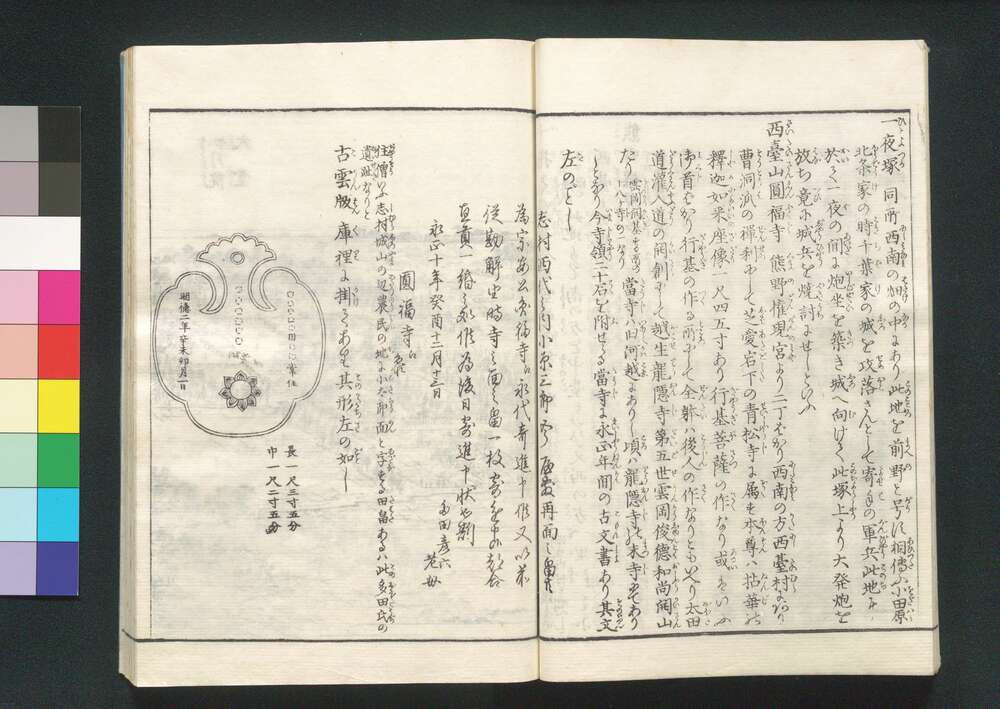 一夜塚 同所西南の畑の中にあり此地を前野と号す相傳ふ小田原
北条家の時千葉家の城を攻落さんとて寄手の軍兵此地に
於て一夜の間に炮坐を築き城へ向けて此塚上より大発炮を
放ち竟に城兵を焼討にせしといふ
西臺山圓福寺 熊野権現宮より二丁ばかり西南の方西臺村にあり
曹洞派の禅刹にして芝愛宕下の青松寺に属す本尊ハ拈華の
釋迦如来座像一尺四五寸あり行基菩薩の作なり或ハいふ
御首ばかり行基の作る所にして全躰ハ後人の作なりともいへり太田
道灌入道の開創にして越生龍隠寺第五世雲岡俊徳和尚開山
たり 雲岡開基する八ヶ寺の一なり 當寺ハ旧河越にありし頃ハ龍隠寺の末寺にてあり
しとなり今寺領二十石を附せらる當寺に永正年間の古文書あり其文
左のごとし
志村両代之内小原三郎 再両之畠
為宗 公 福寺 永代寄進申作又以
従 解 時寺之 畠一枚 を
直貢一 永作為後日寄進申状
永正十年癸酉十二月十三日
多田彦六
老母
圓福寺
住僧いふ志村城山の辺農民の地に小太郎面と字する田畠あるハ此多田氏の
遺趾なりと
古雲版 庫裡に掛くるあり其形左の如し
明徳二年辛未卯月一日
住
長一尺三寸五分
巾一尺二寸五分